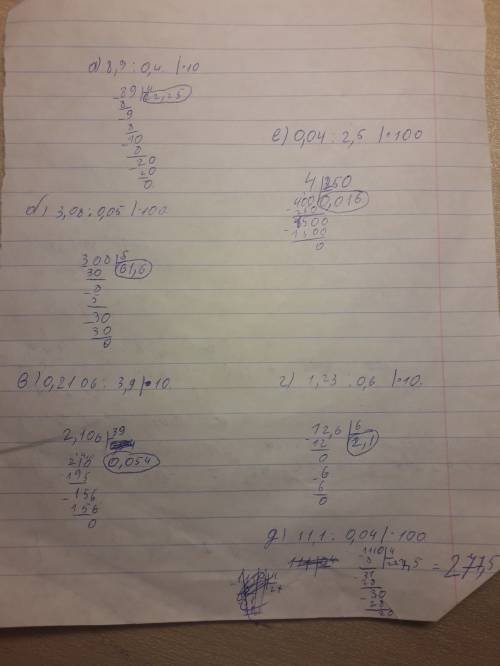 а) 8,9 : 0,4 |·10
89 |4
8 22,25
- 9
8
- 10
8
- 20
20
0
е) 0,04 : 2,5 |·100
4 |250
400 0,016
- 250
1500
- 1500
0
б) 3,08 : 0,05 |·100
308 |5
30 61,6
- 8
5
- 30
30
0
в) 0,2106 : 3,9 |·10
2,106 |39
210 0,054
195
- 156
156
0
г) 1,23 : 0,6 |·10
- 12,6 |6
12 2,1
0
- 6
6
0
д) 11,1 : 0,04 |·100
- 1110 |4
8
- 31
28
- 30
28
20
= 277,5